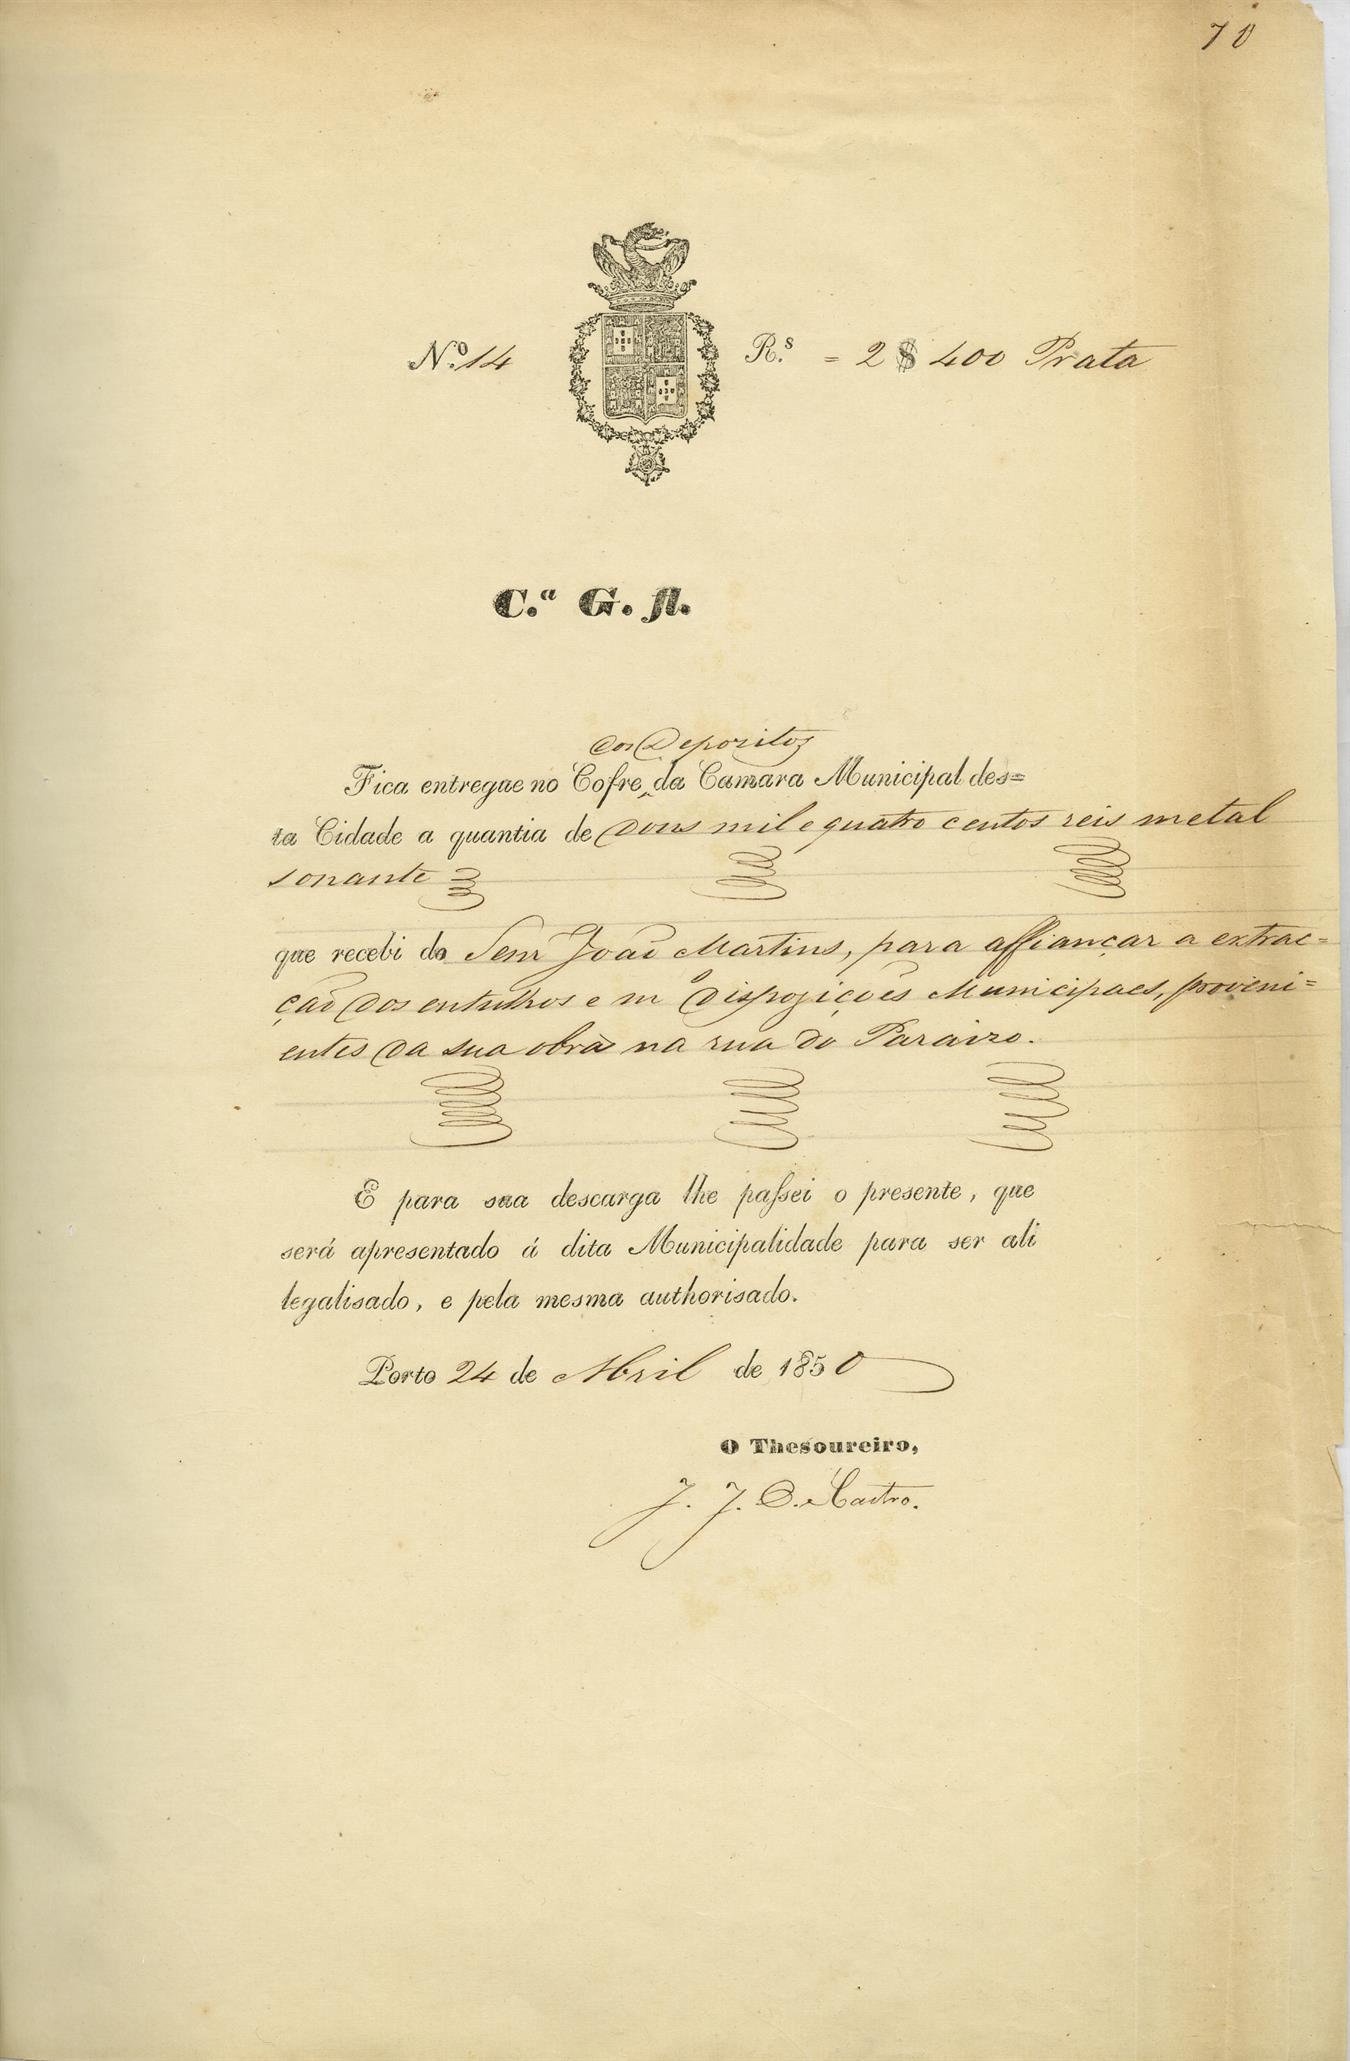 70
N.º 14 R.s = 2$400 Prata
C.ª G. fl.
dos Depozitos
Fica entregue no Cofre, da Camara Municipal des=
ta Cidade a quantia de dous mil e quatro centos reis metal
sonante
que recebi do Senr João Martins, para affiançar a extrac=
ção dos entulhos e m.º Dispoziçoẽs Municipaes, proveni=
entes da sua obra na rua do Paraizo.
E para sua descarga lhe paſsei o presente, que
será apresentado á dita Municipalidade para ser ali
legalisado, e pela mesma authorisado.
Porto 24 de Abril de 1850
O Thesoureiro,
J. J. D. e Castro.